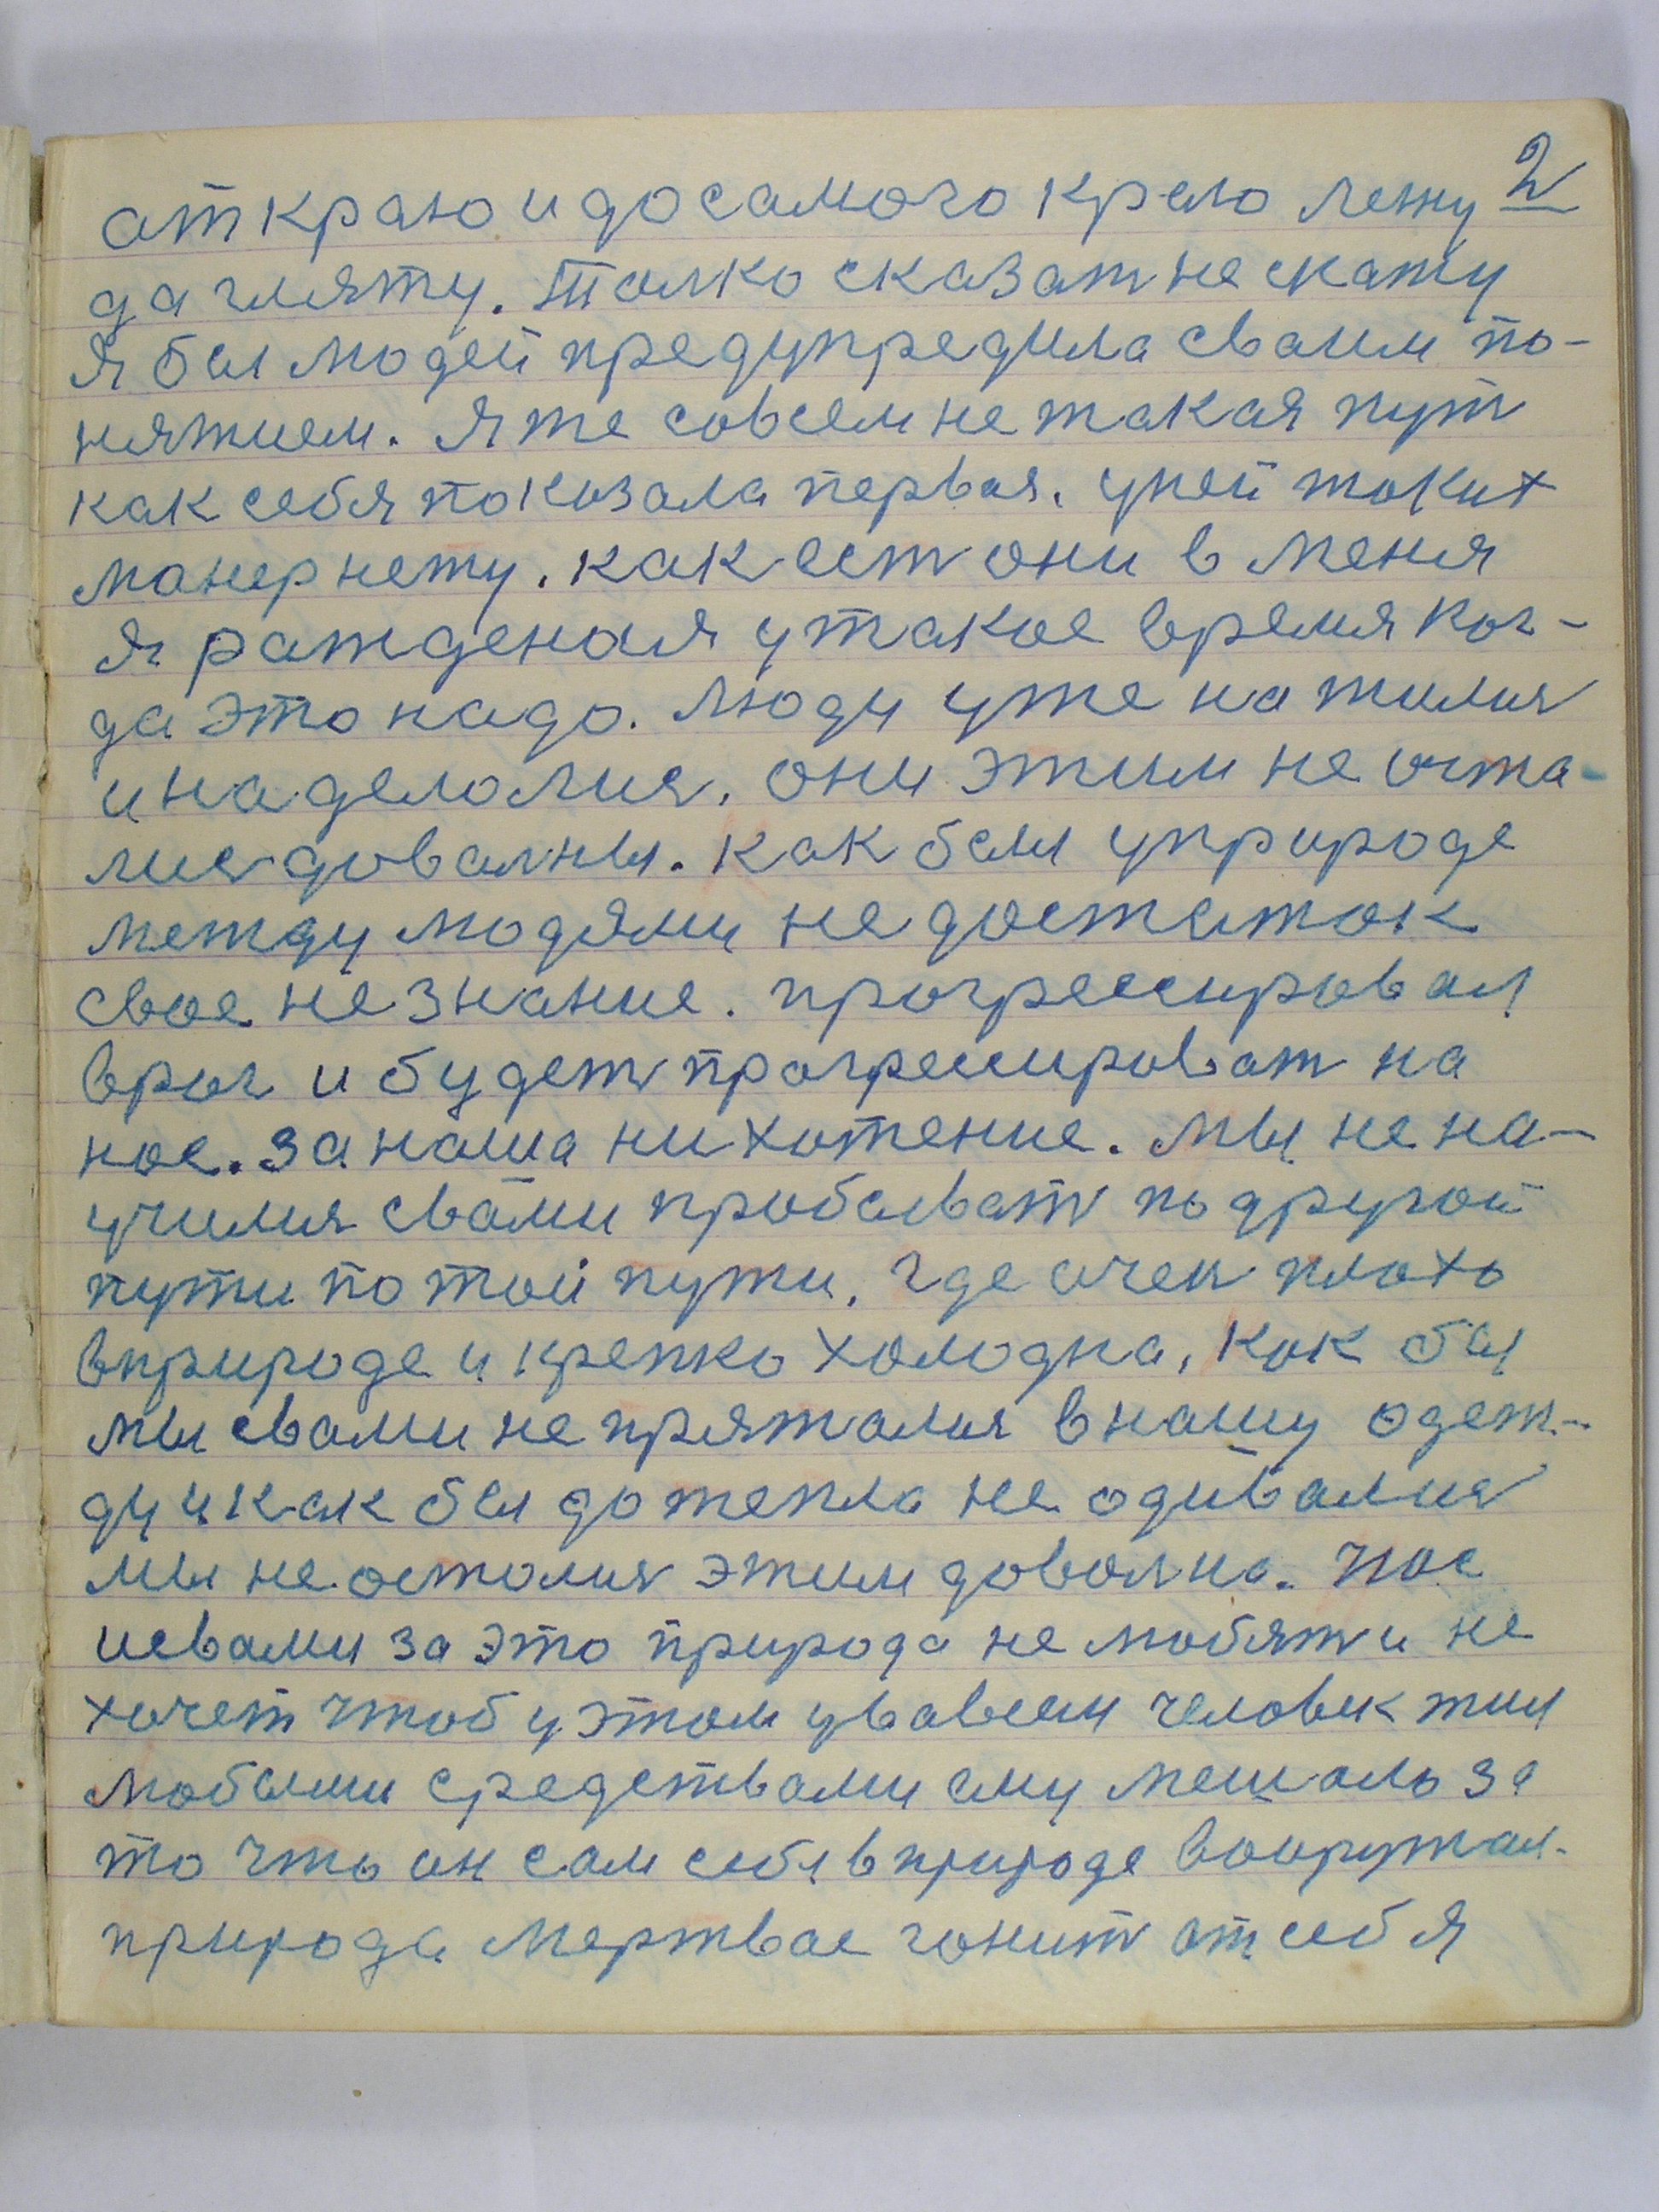 2
от краю и до самого краю лежу
да гляжу. Толко сказат не скажу
Я бы людей предупредила сваим по-
нятием. Я же совсем не такая пут
как себя показала первая. у ней таких
манер нету. как ест они в меня
я ражденая у такое время ког-
да это надо. Люди уже нажилис
и наделолис. они этим не оста-
лис доволны. как был у природе
между людями недостаток
свое незнание. прогрессировал
враг и будет прогрессироват на
нас. за наша ни хотение. мы не на-
училис с вами пробыват по другой
пути по той пути. где очен плохо
в природе и крепко холодна. как бы
мы с вами не прятались в нашу одеж-
ду и как бы до тепла не одивалис
мы не осталис этим доволна. Нас
и с вами за это природа не любит и не
хочет чтоб у этом у во всем человек жил
любыми средствами ему мешало за
то что он сам себя в природе вооружал.
природа мертвае гонит от себя